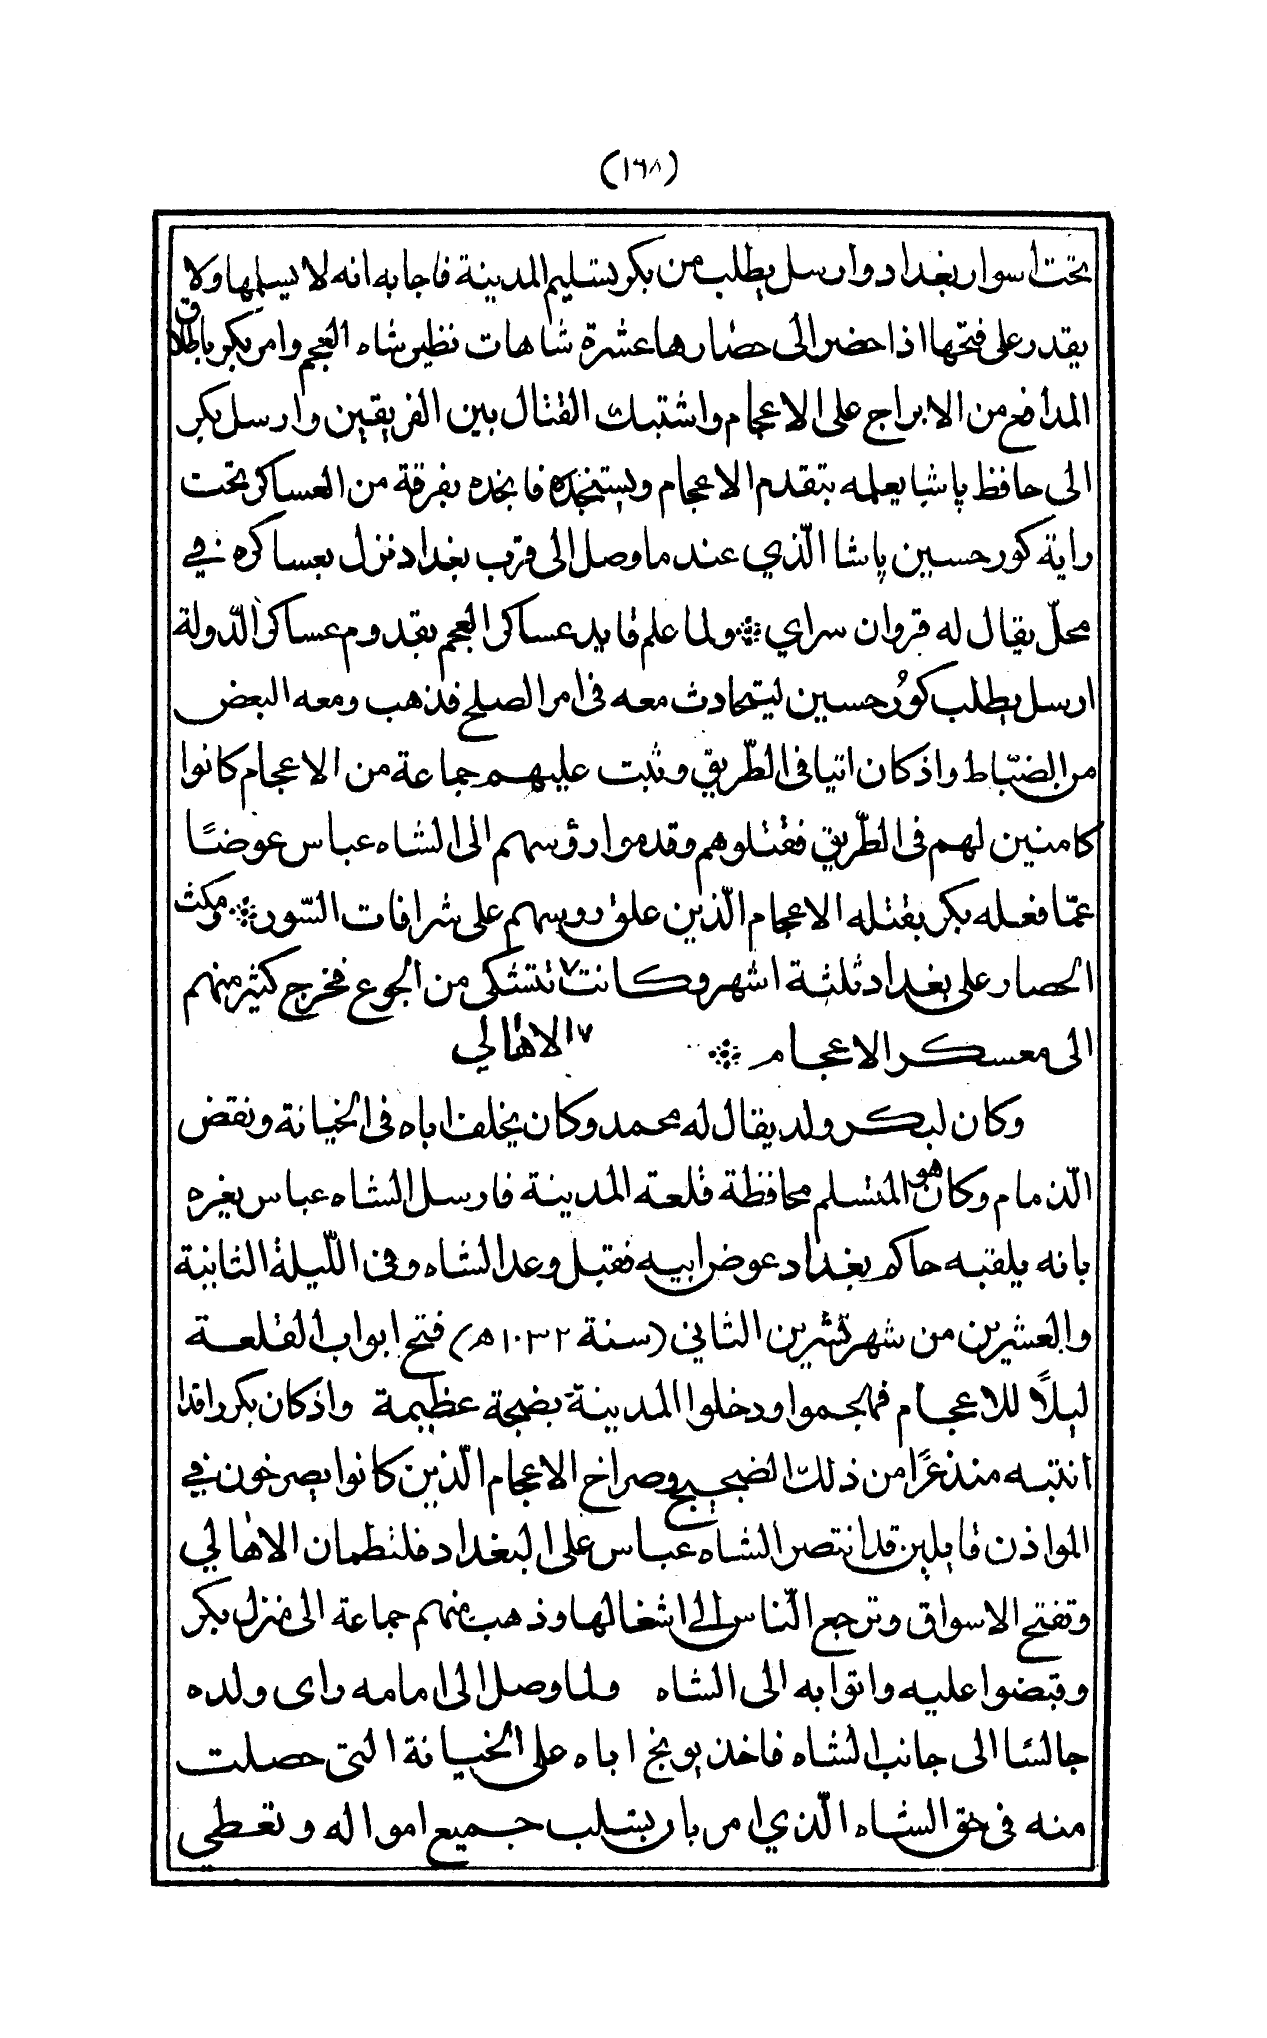 (١٦٨)
تحت أسوار بغداد وارسل يطلب من بكر تسليم المدينة فاجابه انه لا يسلمها ولا
يقدر على فتحها اذا حضر الى حصارها عشرة شاهات نظير شاه العجم وامر بكر باطلاق
المدافع من الابراج على الاعجام واشتبك القتال بين الفريقين وارسل بكر
الى حافظ پاشا يعلمه بتقدم الاعجام ويستنجده فانجده بفرقة من العساكر تحت
راية كور حسين پاشا الّذي عند ما وصل الى قرب بغداد نزل بعساكره في
محلّ يقال له قروان سراي ❊ ولما علم قايد عساكر العجم بقدوم عساكر الدّولة
ارسل يطلب كوُر حسين ليتحادث معه في امر الصلح فذهب ومعه البعض
من الضبّاط واذ كان اتيا في الطّريق وثبت عليهم جماعة من الاعجام كانوا
كامنين لهم في الطّريق فقتلوهم وقدموا رؤسهم الى الشاه عباس عوضًا
عمّا فعله بكر بقتله الاعجام الّذين علق روسهم على شرافات السّور ❊ ومكث
الحصار على بغداد ثلثة اشهر وكانت٧ تتشكى من الجوع فخرج كثير منهم
الى معسكر الاعجام ❊ ٧ الاهالي
وكان لبكر ولد يقال له محمد وكان يخلف اباه في الخيانة ونقض
الّذمام وكان هو المتسلم محافظة قلعة المدينة فارسل الشاه عباس يغره
بانه يلقبه حاكم بغداد عوض ابيه فقبل وعد الشاه وفي اللّيلة الثانية
والعشرين من شهر تشرين الثاني (سنة ١٠٣٢ه) فتح ابواب القلعة
ليلاً للاعجام فهجموا ودخلوا المدينة بضجة عظيمة واذ كان بكر راقدا
انتبه منذعرًا من ذلك الضجيج وصراخ الاعجام الّذين كانوا يصرخون في
المواذن قايلين قد انتصر الشاه عباس على البغداد فلتطمان الاهالي
وتفتح الاسواق وترجع النّاس الى اشغالها وذهب منهم جماعة الى منزل بكر
وقبضوا عليه واتوا به الى الشاه ولما وصل الى امامه راى ولده
جالسا الى جانب الشاه فاخذ يوبخ اباه على الخيانة التى حصلت
منه في حق الشاه الّذي امر بان يسلب جميع امواله وتعطي